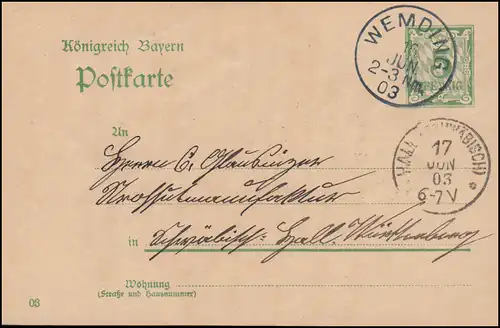 Königreich Bayern
Postkarte
WEMDING
16
JUN
2-3 Nm
03
PFENNIG
An
Herren C.
HALL (SCHWÄBISCH)
17
JUN
03
6-7 V
in Schwäbisch Hall. Württemberg
Wohnung
(Straße und Hausnummer)
03